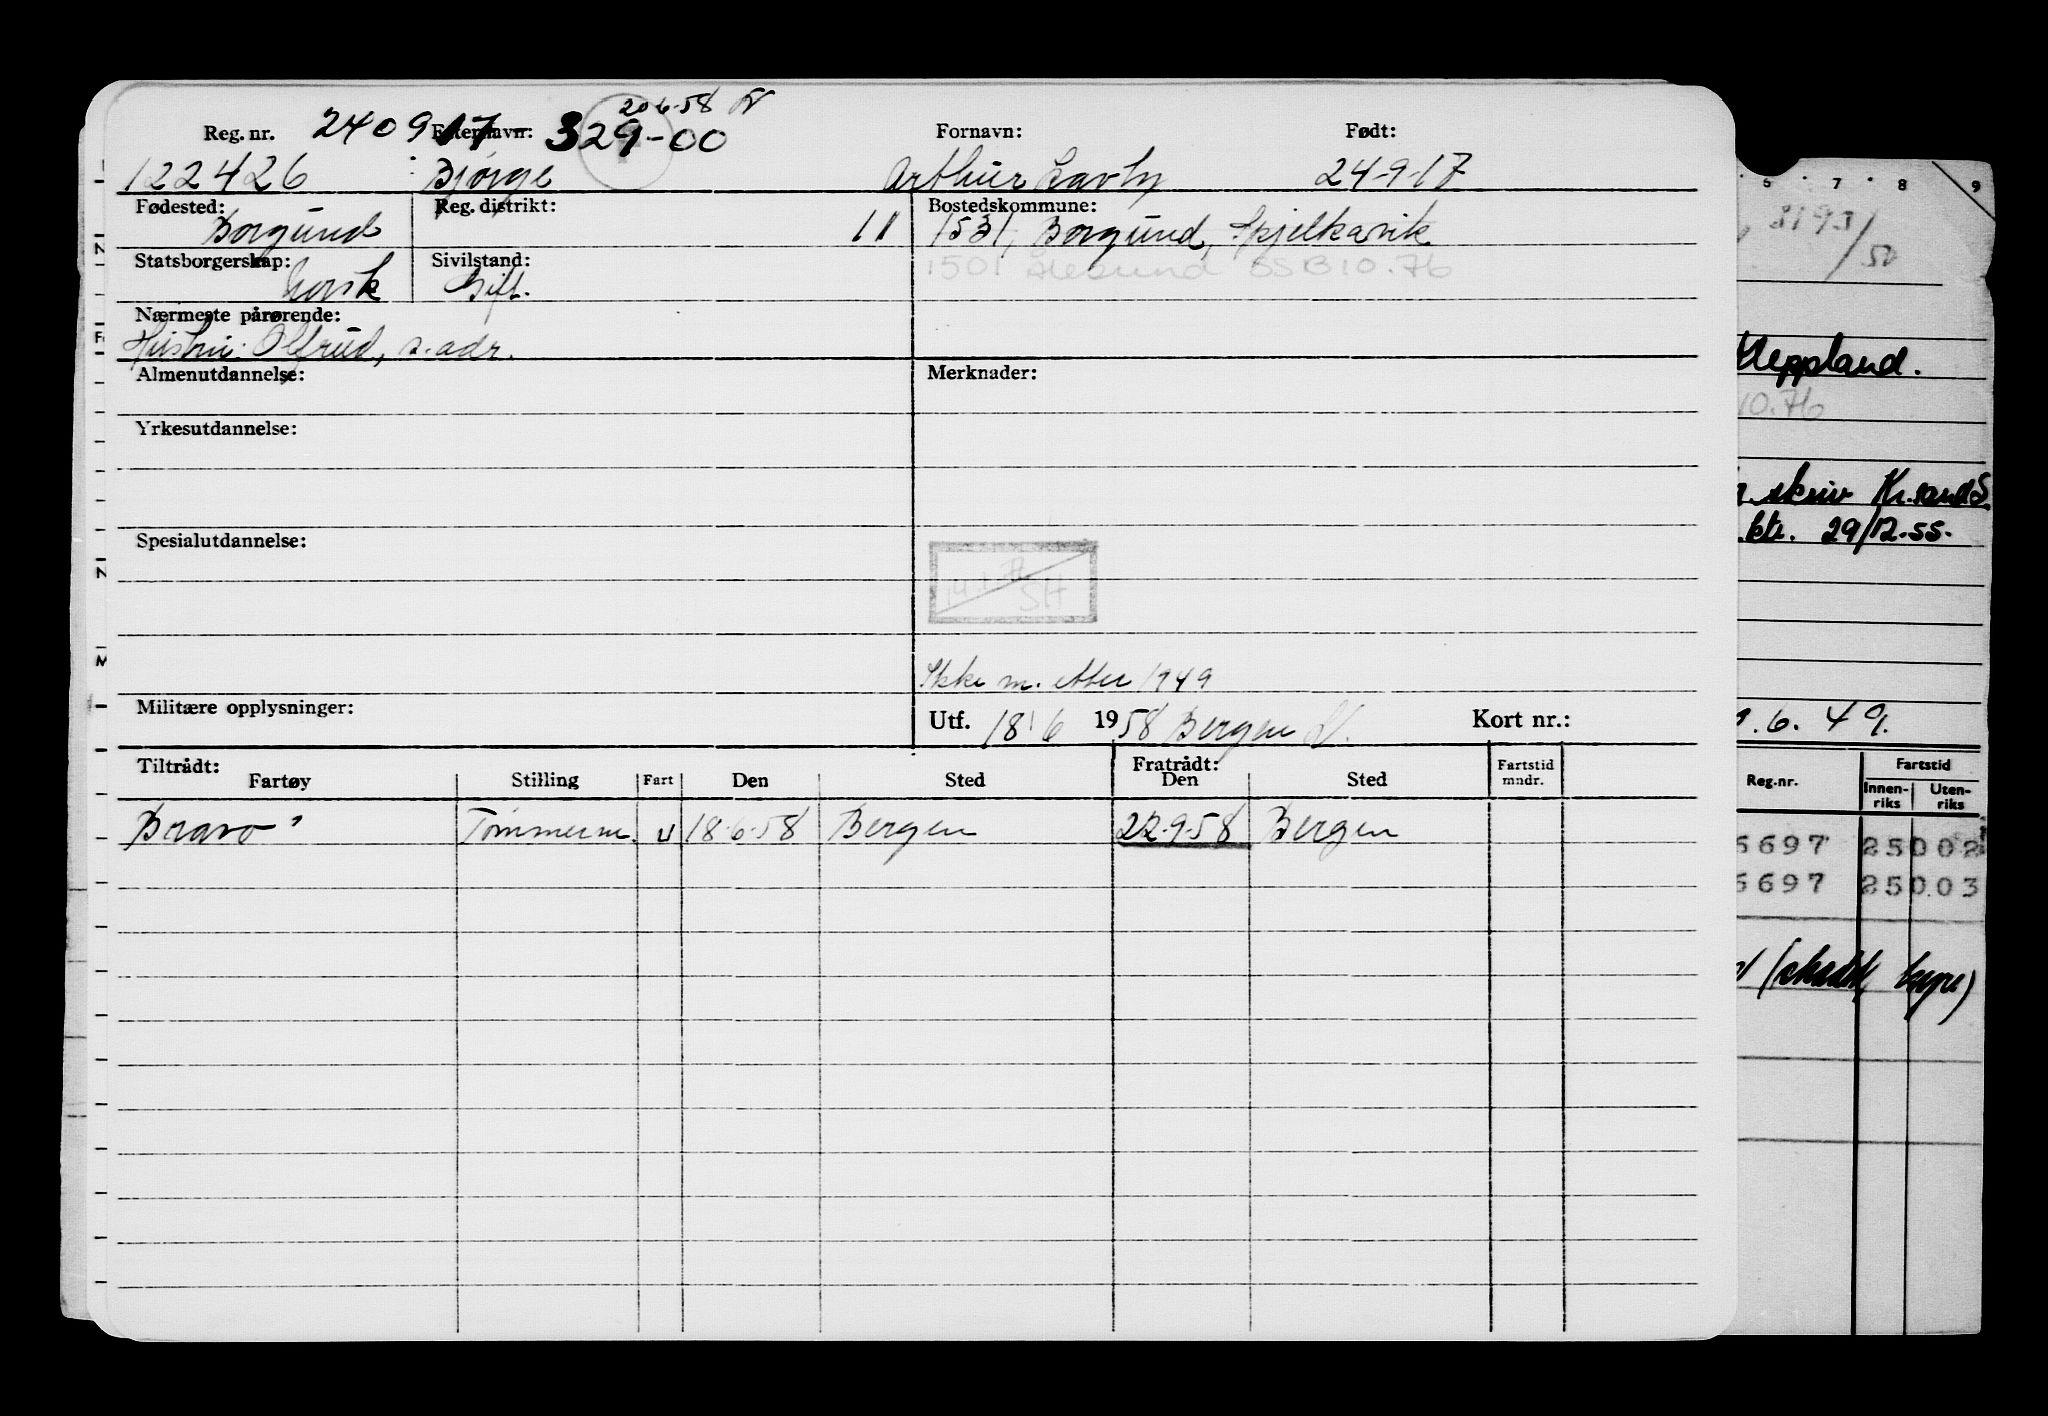 20 6-58
Reg. nr. 240917 Etternavn: 329-00 Fornavn: Født:
122426 Bjørge Arthur Lavly 24-9-17
Fødested: Reg. distrikt: Bostedskommune:
Borgund 11 1531, Borgund, Spjelkavik
Statsborgerskap: Sivilstand: 1501 Ålesund SSB 10.76
Norsk Gift.
Nærmeste pårørende:
Hustru: Olfrid, s. adr.
Almenutdannelse: Merknader:
Yrkesutdannelse:
Spesialutdannelse:
SH
Ikke m. etter 1949
Militære opplysninger: Utf. 18/6 1958 Bergen Kort nr.:
Tiltrådt: Fratrådt: Fartstid
Fartøy Stilling Fart Den Sted Den Sted mndr.
Bravo Tømmerm. U 18-6-58 Bergen 22-9-58 Bergen
6 7 8 9
8193/50
Heppland.
10.76
skriv Kr.sand S.
ktr. 29/12.55.
6. 49.
Reg.nr. Fartstid
Innen-riks Uten-riks
6697 25002
6697 250.03